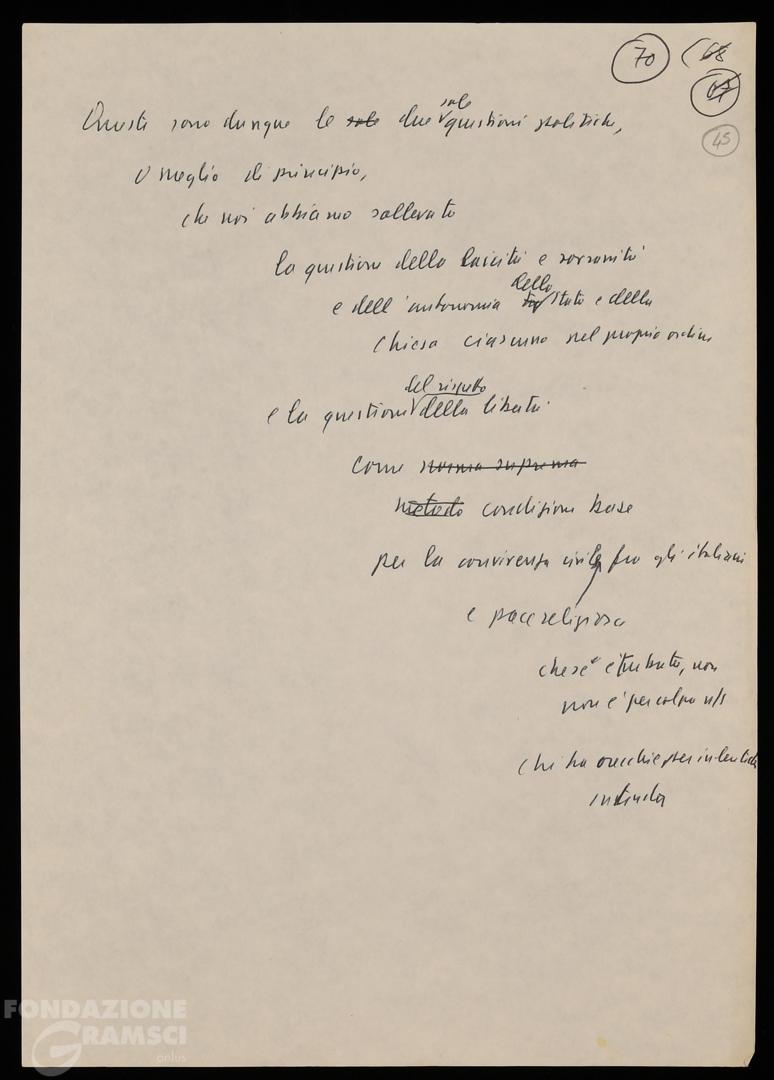 70 (68
67
45
Queste sono dunque le sole due sole questioni politiche,
o meglio di principio,
che noi abbiamo sollevato
la questione della laicità e sovranità
e dell'autonomia dello Stato e della
Chiesa ciascuno nel proprio ordine
e la questione del rispetto della libertà
come norma suprema
metodo condizione base
per la convivenza civile fra gli italiani
e pace religiosa
che se è turbata, non
non è per colpa n/s
chi ha orecchie per intendere
intenda
FONDAZIONE
GRAMSCI
onlus